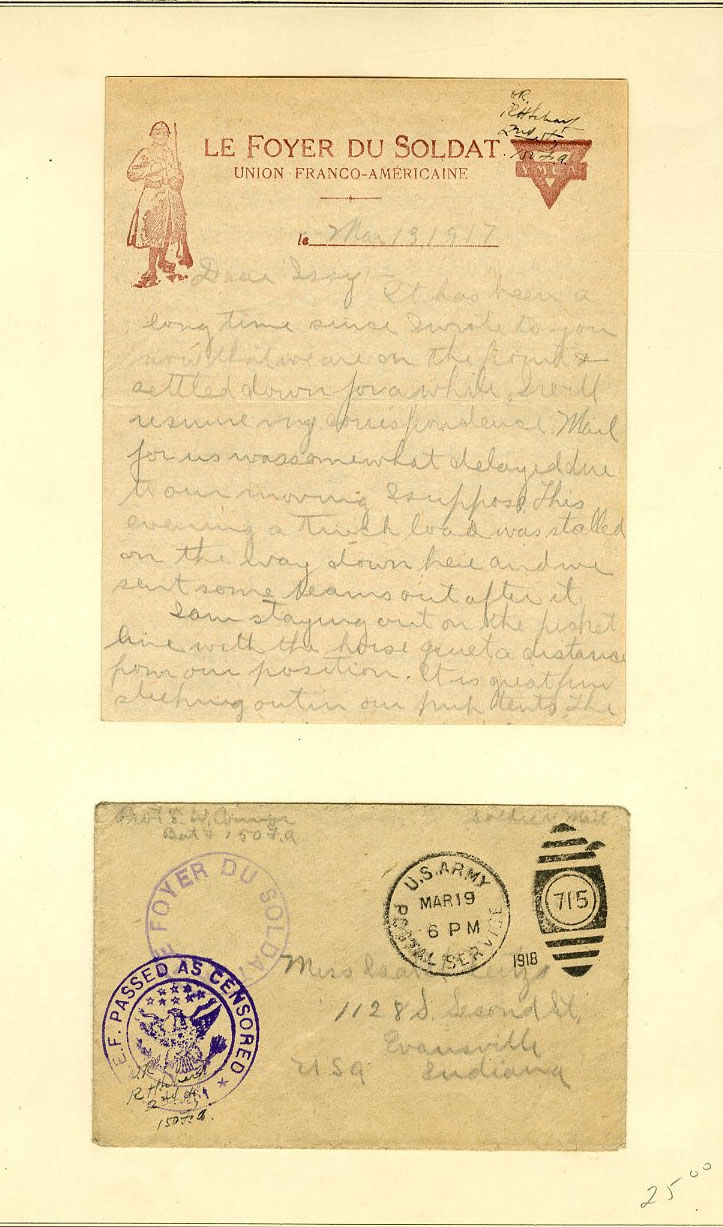 OK
LE FOYER DU SOLDAT
UNION FRANCO-AMÉRICAINE
YMCA
le Mar 13 1917
Dear Issy -
It has been a
long time since I wrote to you
now that we are on the front &
settled down for a while, I will
resume my correspondence. Mail
for us was somewhat delayed due
to our moving I suppose. This
evening a truck load was stalled
on the way down here and we
sent some teams out after it.
I am staying out on the picket
line with the horse quiet a distance
from our position. It is great fun
sleeping out in our pup tents. The
Bat 150 F.A
Soldiers Mail
FOYER DU SOLDAT
U.S. ARMY
POSTAL SERVICE
MAR 19
6 PM
1918
715
E.F. PASSED AS CENSORED
Miss
1128 S. Second St,
Evansville
Indiana
USA
OK
150 F.A.
25 00